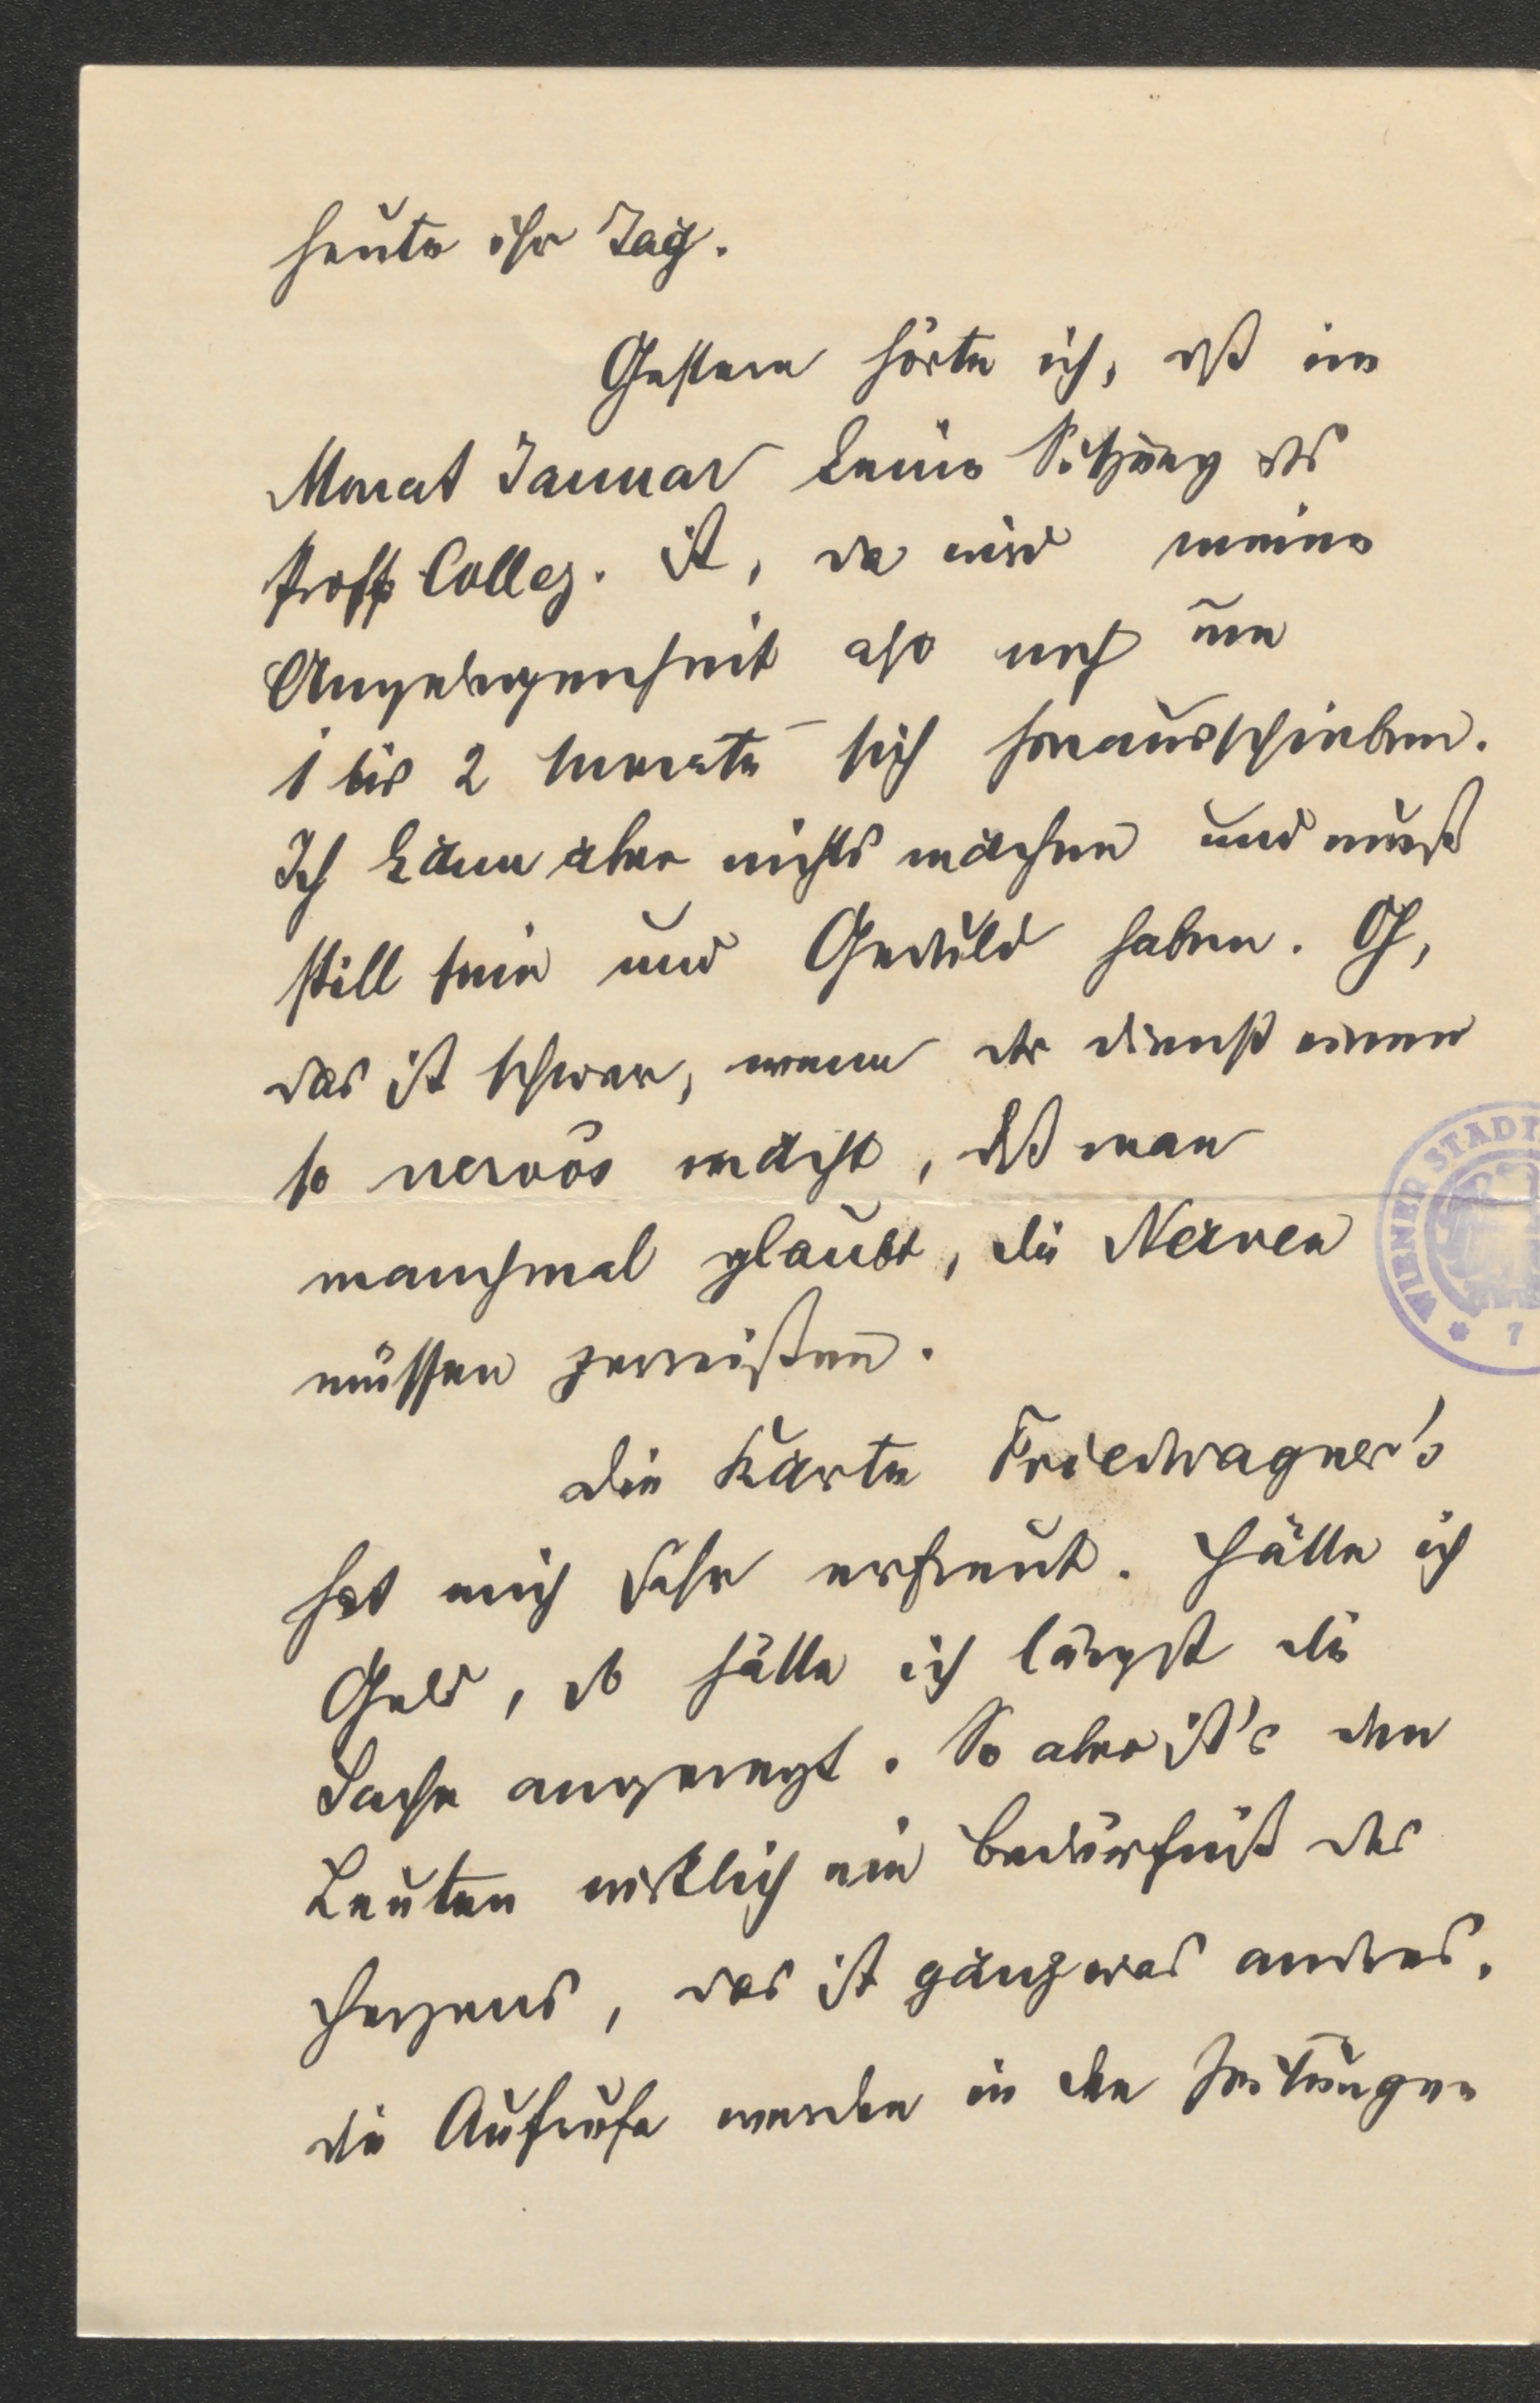 heute ihr Tag.
Gestern hörte ich, daß im
Monat Januar keine Sitzung des
Proff. Colleg. ist, da wird meine
Angelegenheit also noch um
1 bis 2 Monate sich hinausschieben.
Ich kann aber nichts machen und muß
still sein und Geduld haben. Oh,
das ist schwer, wenn der Dienst einen
so nervös macht, daß man
manchmal glaubt, die Nerven
müssen zerreißen.
Die Karte Friedwagner's
hat mich sehr erfreut. Hätte ich
Geld, so hätte ich längst die
Sache angeregt. So aber ist's den
Leuten wirklich ein Bedürfniß des
Herzens, das ist ganz was andres.
Die Aufrufe werden in den Zeitungen
WIENER STADT
7